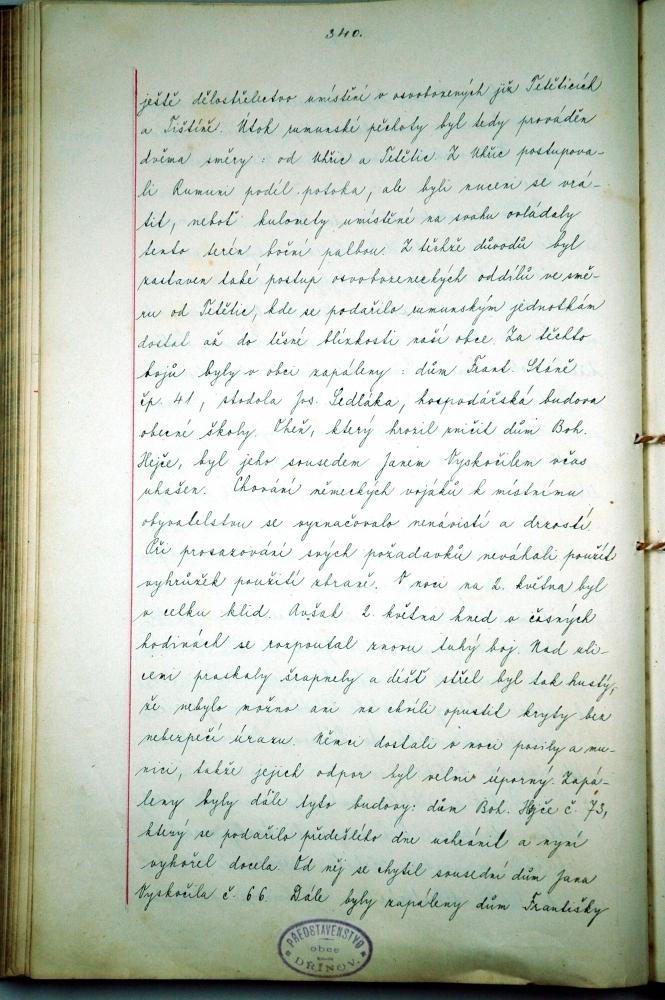 340.
ještě dělostřelectvo umístění v osvobozených již Tetěticích
a Tištině. Útok rumunské pěchoty byl tedy prováděn
dvěma směry: od Uhřic a Tetětic. Z Uhřic postupova-
li Rumuni podél potoka, ale byli nuceni se vrá-
tit, neboť kulomety umístěné na svahu ovládaly
tento terén boční palbou. Z těchže důvodů byl
zastaven také postup osvobozeneckých oddílů ve smě-
ru od Tetětic, kde se podařilo rumunským jednotkám
dostat až do těsné blízkosti naší obce. Za těchto
bojů byly v obci zapáleny: dům Frant. Stáně
čp. 41, stodola Jos. Sedláka, hospodářská budova
obecné školy. Oheň, který hrozil zničit dům Boh.
Hejče, byl jeho sousedem Janem Vyskočilem včas
uhašen. Chování německých vojáků k místnímu
obyvatelstvu se vyznačovalo nenávistí a drzostí.
Při prosazování svých požadavků neváhali použít
vyhrůžek použití zbraně. V noci na 2. května byl
v celku klid. Avšak 2. května hned v časných
hodinách se rozpoutal znovu tuhý boj. Nad uli-
cemi praskaly šrapnely a déšť střel byl tak hustý,
že nebylo možno ani na chvíli opustit kryty bez
nebezpečí úrazu. Němci dostali v noci posily a mu-
nici, takže jejich odpor byl velmi úporný. Zapá-
leny byly dále tyto budovy: dům Boh. Hejče č. 73,
který se podařilo předešlého dne uchránit a nyní
vyhořel docela. Od něj se chytil sousední dům Jana
Vyskočila č. 66. Dále byly zapáleny dům Františky
PŘEDSTAVENSTVO
obce
DŘÍNOV.